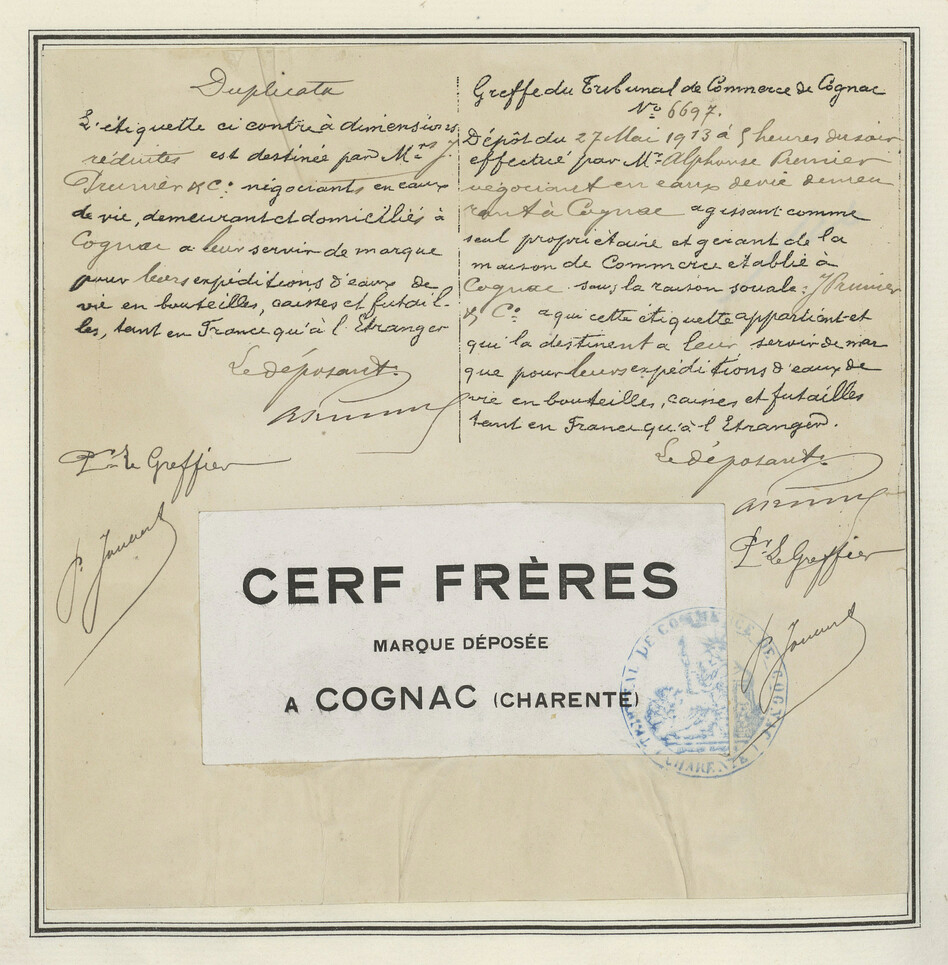 Duplicata
L'étiquette ci contre à dimensions
réduites est destinée par Mrs J.
Prunier & Co. négociants en eaux
de vie, demeurant et domiciliés à
Cognac a leur servir de marque
pour leurs expéditions d'eaux de
vie en bouteilles, caisses et futail-
les, tant en France qu'à l'Etranger
Le déposant.
Pr. Le Greffier
Greffe du Tribunal de Commerce de Cognac
No. 6697.
Dépôt du 27 Mai 1913 à 5 heures du soir
effectué par Mr. Alphonse Prunier
négociant en eaux de vie demeu
rant à Cognac agissant comme
seul propriétaire et gérant de la
maison de Commerce etablie à
Cognac sous la raison sociale: J Prunier
& Co. a qui cette étiquette appartient et
qui la destinent a leur servir de mar
que pour leurs expéditions d'eaux de
vie en bouteilles, caisses et futailles
tant en France qu'à l'Etranger.
Le déposant.
Pr. Le Greffier
CERF FRÈRES
MARQUE DÉPOSÉE
A COGNAC (CHARENTE)
TRIBUNAL DE COMMERCE DE COGNAC
CHARENTE